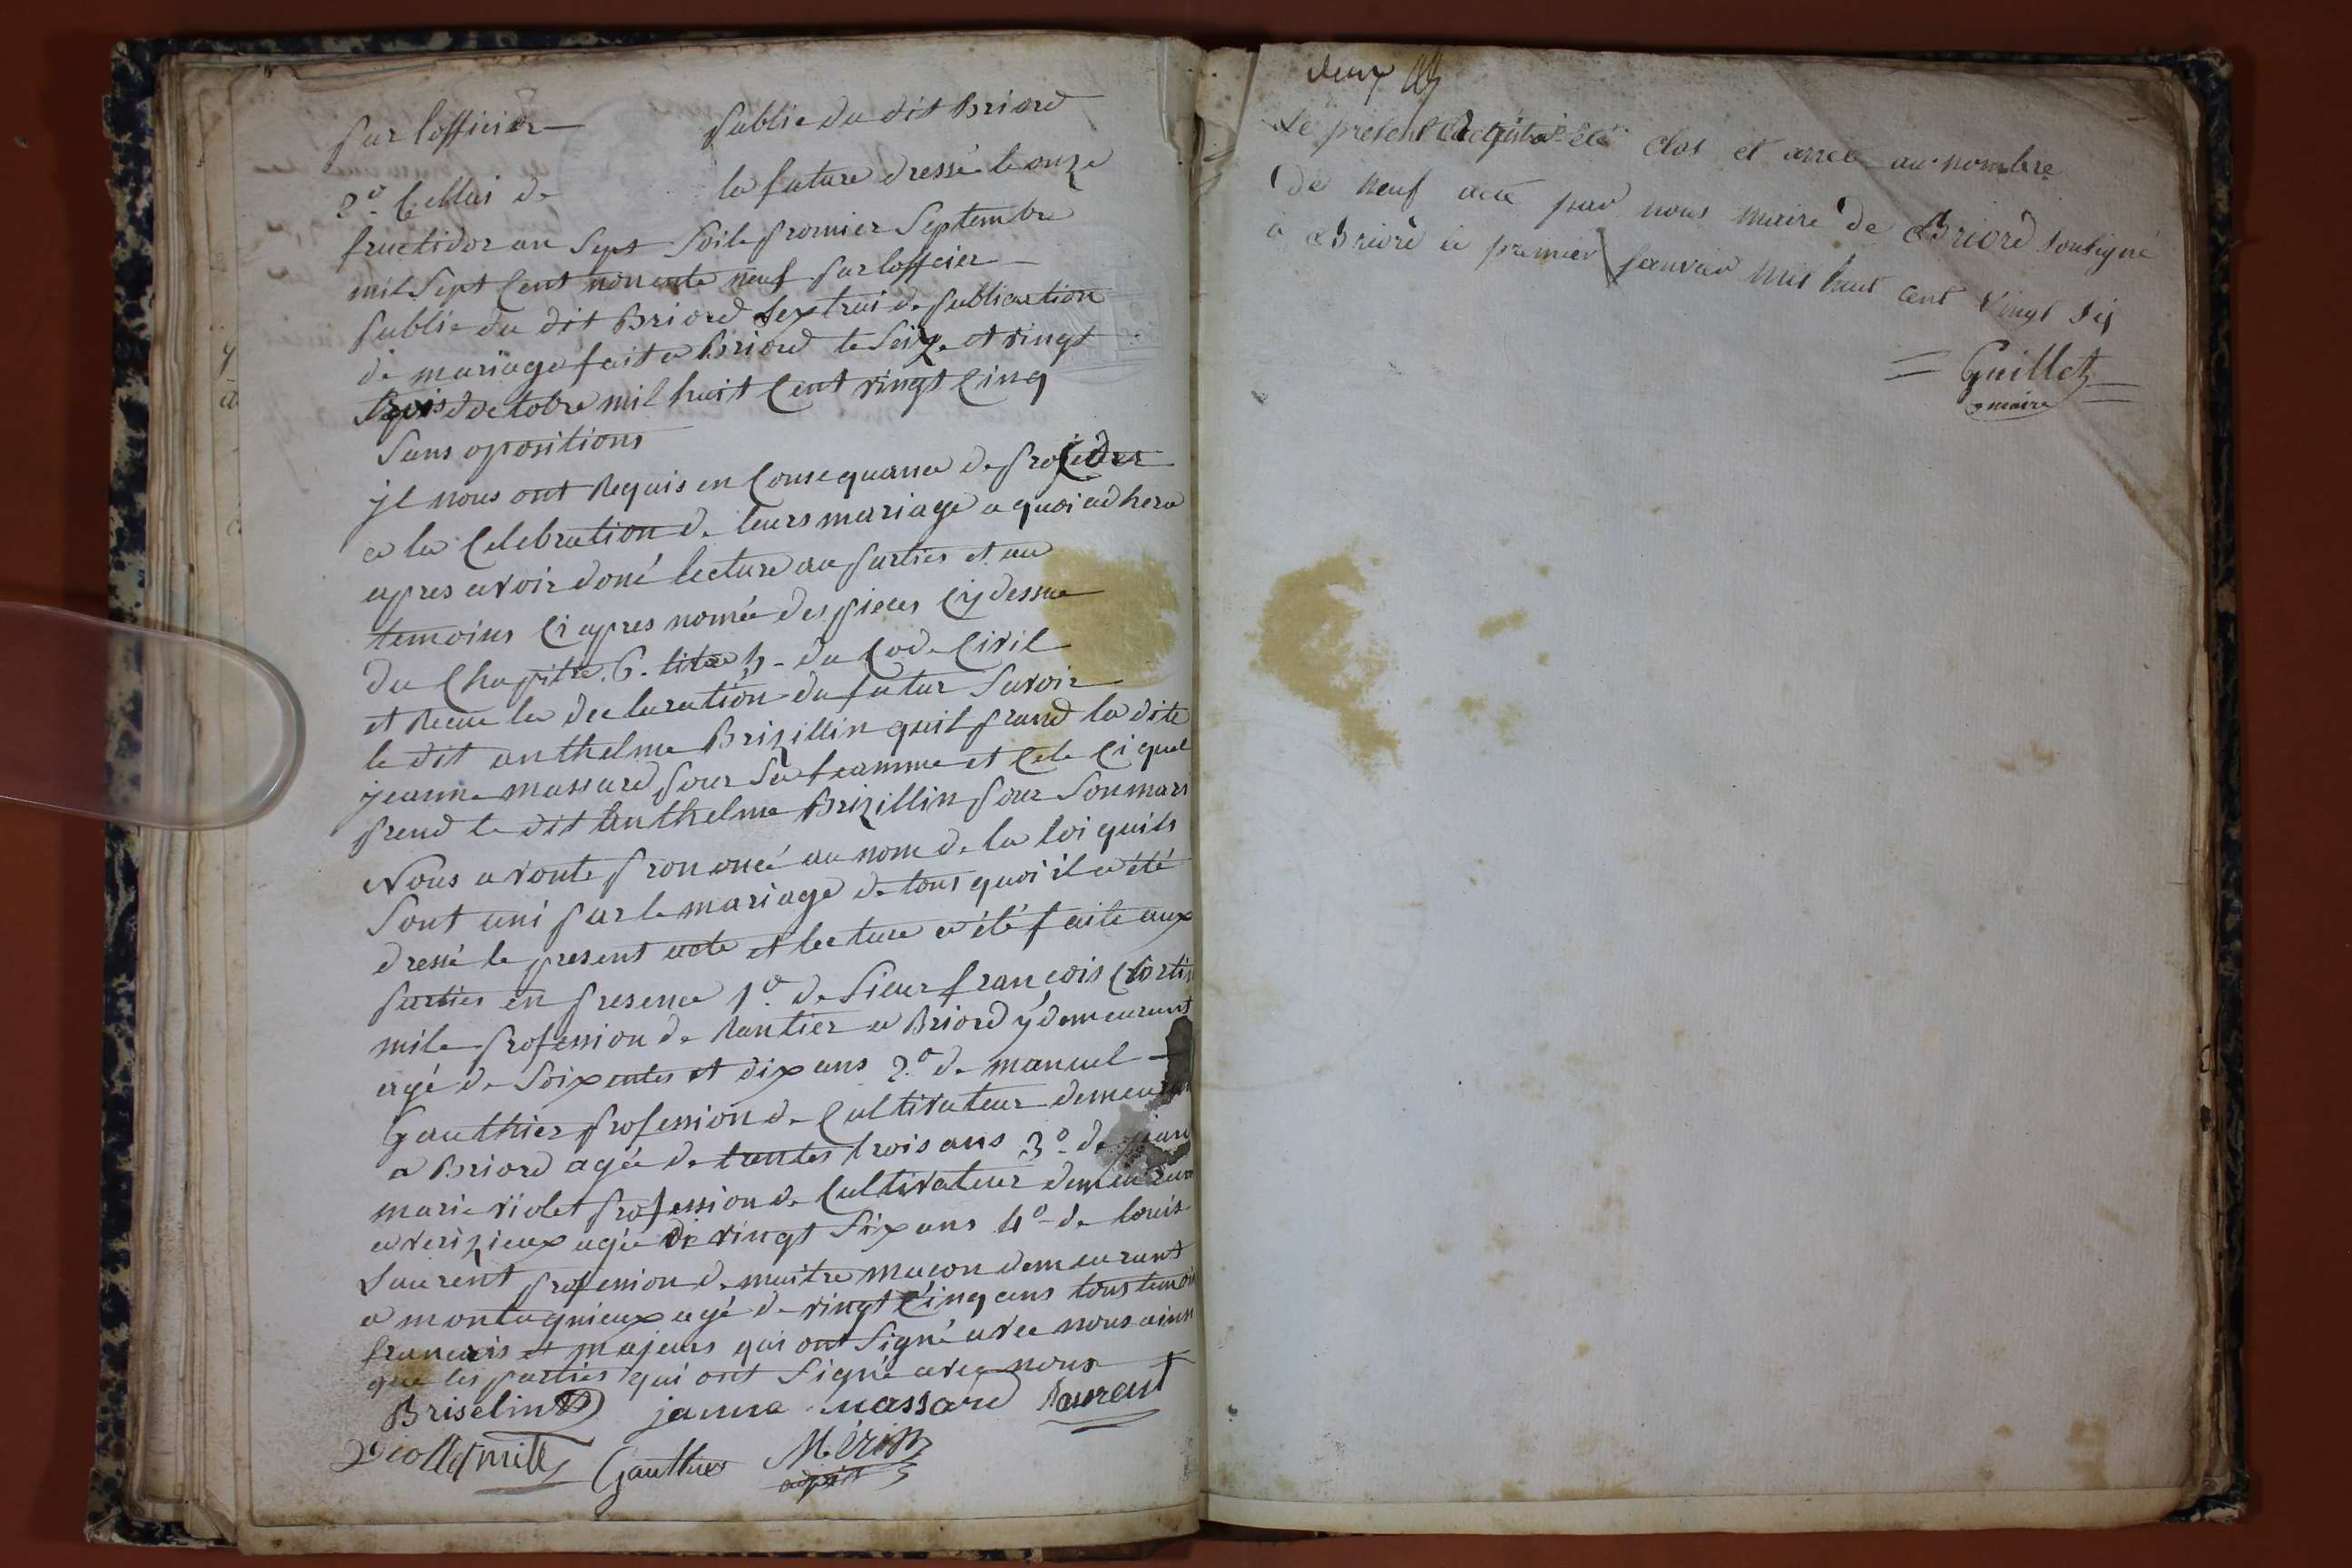 par lofficier publie du dit Briord
2o. Cellui de la future dressé le onze
fructidor an sept soile promier Septembre
mil Sept Cent nonente neuf par loffcier
publie du dit Briord lextrai de publication
de mariage fait a Briord le Seize et vingt
trois doctobre mil huit Cent vingt Cinq
Sans opositions
jl nous ont Requis en Consequance de proceder
a la Celebration de leurs mariage a quoi adhera
apres avoir doné lecture au parties et au
temoins Ci apres nomée des pieces Cy dessue
du Chapitre. 6. titre 5 - du Code Civil
et Recue la declaration du futur Savoir
le dit anthelme Brizillin quil prand la dite
jeanne massard pour sa feamme et Cele Ci quel
prend le dit Anthelme Brizillin pour Son mari
Nous avonts prononcé au nom de la loi quils
Sont uni par le mariage de tous quoi il a été
dressé le present acte et lecture a été faite aux
parties en presence 1o. de Sieur françois
mile profession de Rantier a Briord y demeurant
agé de Soixentes et dix ans 2.o de manuel
Gauthier profession de Cultivateur demeurant
a Briord agée de trentes trois ans 3o. de
marie violet profession de Cultivateur demeurant
a verizieux agée de vingt Six ans 4o - de louis
Laurent profession de maitre macon demeurant
a montagnieux agé de vingt Cinq ans tous temoin
francais et majeurs qui ont Signé avec nous ainsi
que les parties qui ont Signé avec nous
Briselin janne massard Laurent
Violletmille Gauthier
deux
Le présent Registre a été Clos et arrete au nombre
de neuf acte par nous maire de Briord Soussigné
a Briord le premier janvier mil huit Cent vingt Six
Guillet
maire